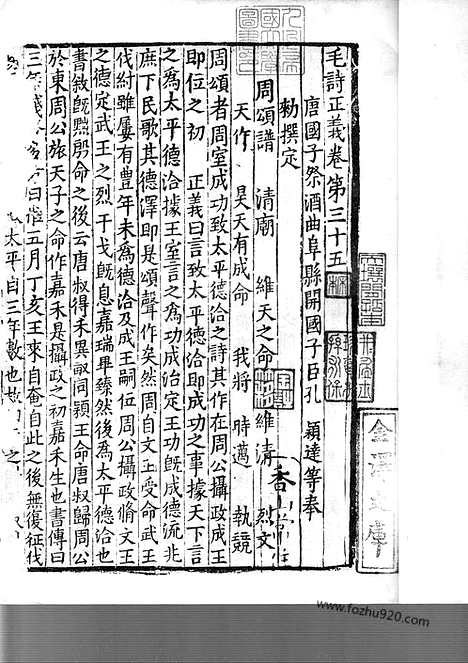 毛詩正義卷第三十五
唐國子祭酒曲阜縣開國子臣孔 穎達等奉
勑撰定
周頌譜 清廟 維天之命 維清 烈文
天作 昊天有成命 我將 時邁 執競
周頌者周室成功致太平德洽之詩其作在周公攝政成王
即位之初 正義曰言致太平德洽即成功之事據天下言
之為太平德洽據王室言之為功成治定王功既成德流兆
庶下民歌其德澤即是頌聲作矣然周自文王受命武王
伐紂雖屢有豐年未為德洽及成王嗣位周公攝政脩文王
之德定武王之烈干戈既息嘉瑞畢臻然後為太平德洽也
書敘既黜殷命之後云唐叔得禾異畝同穎王命唐叔歸周公
於東周公旅天子之命作嘉禾是攝政之初嘉禾生也書傳曰
三年踐 曰惟五月丁亥王來自奄自此之後無復征伐
太平自三年數也故
金澤文庫
www.fozhu920.com